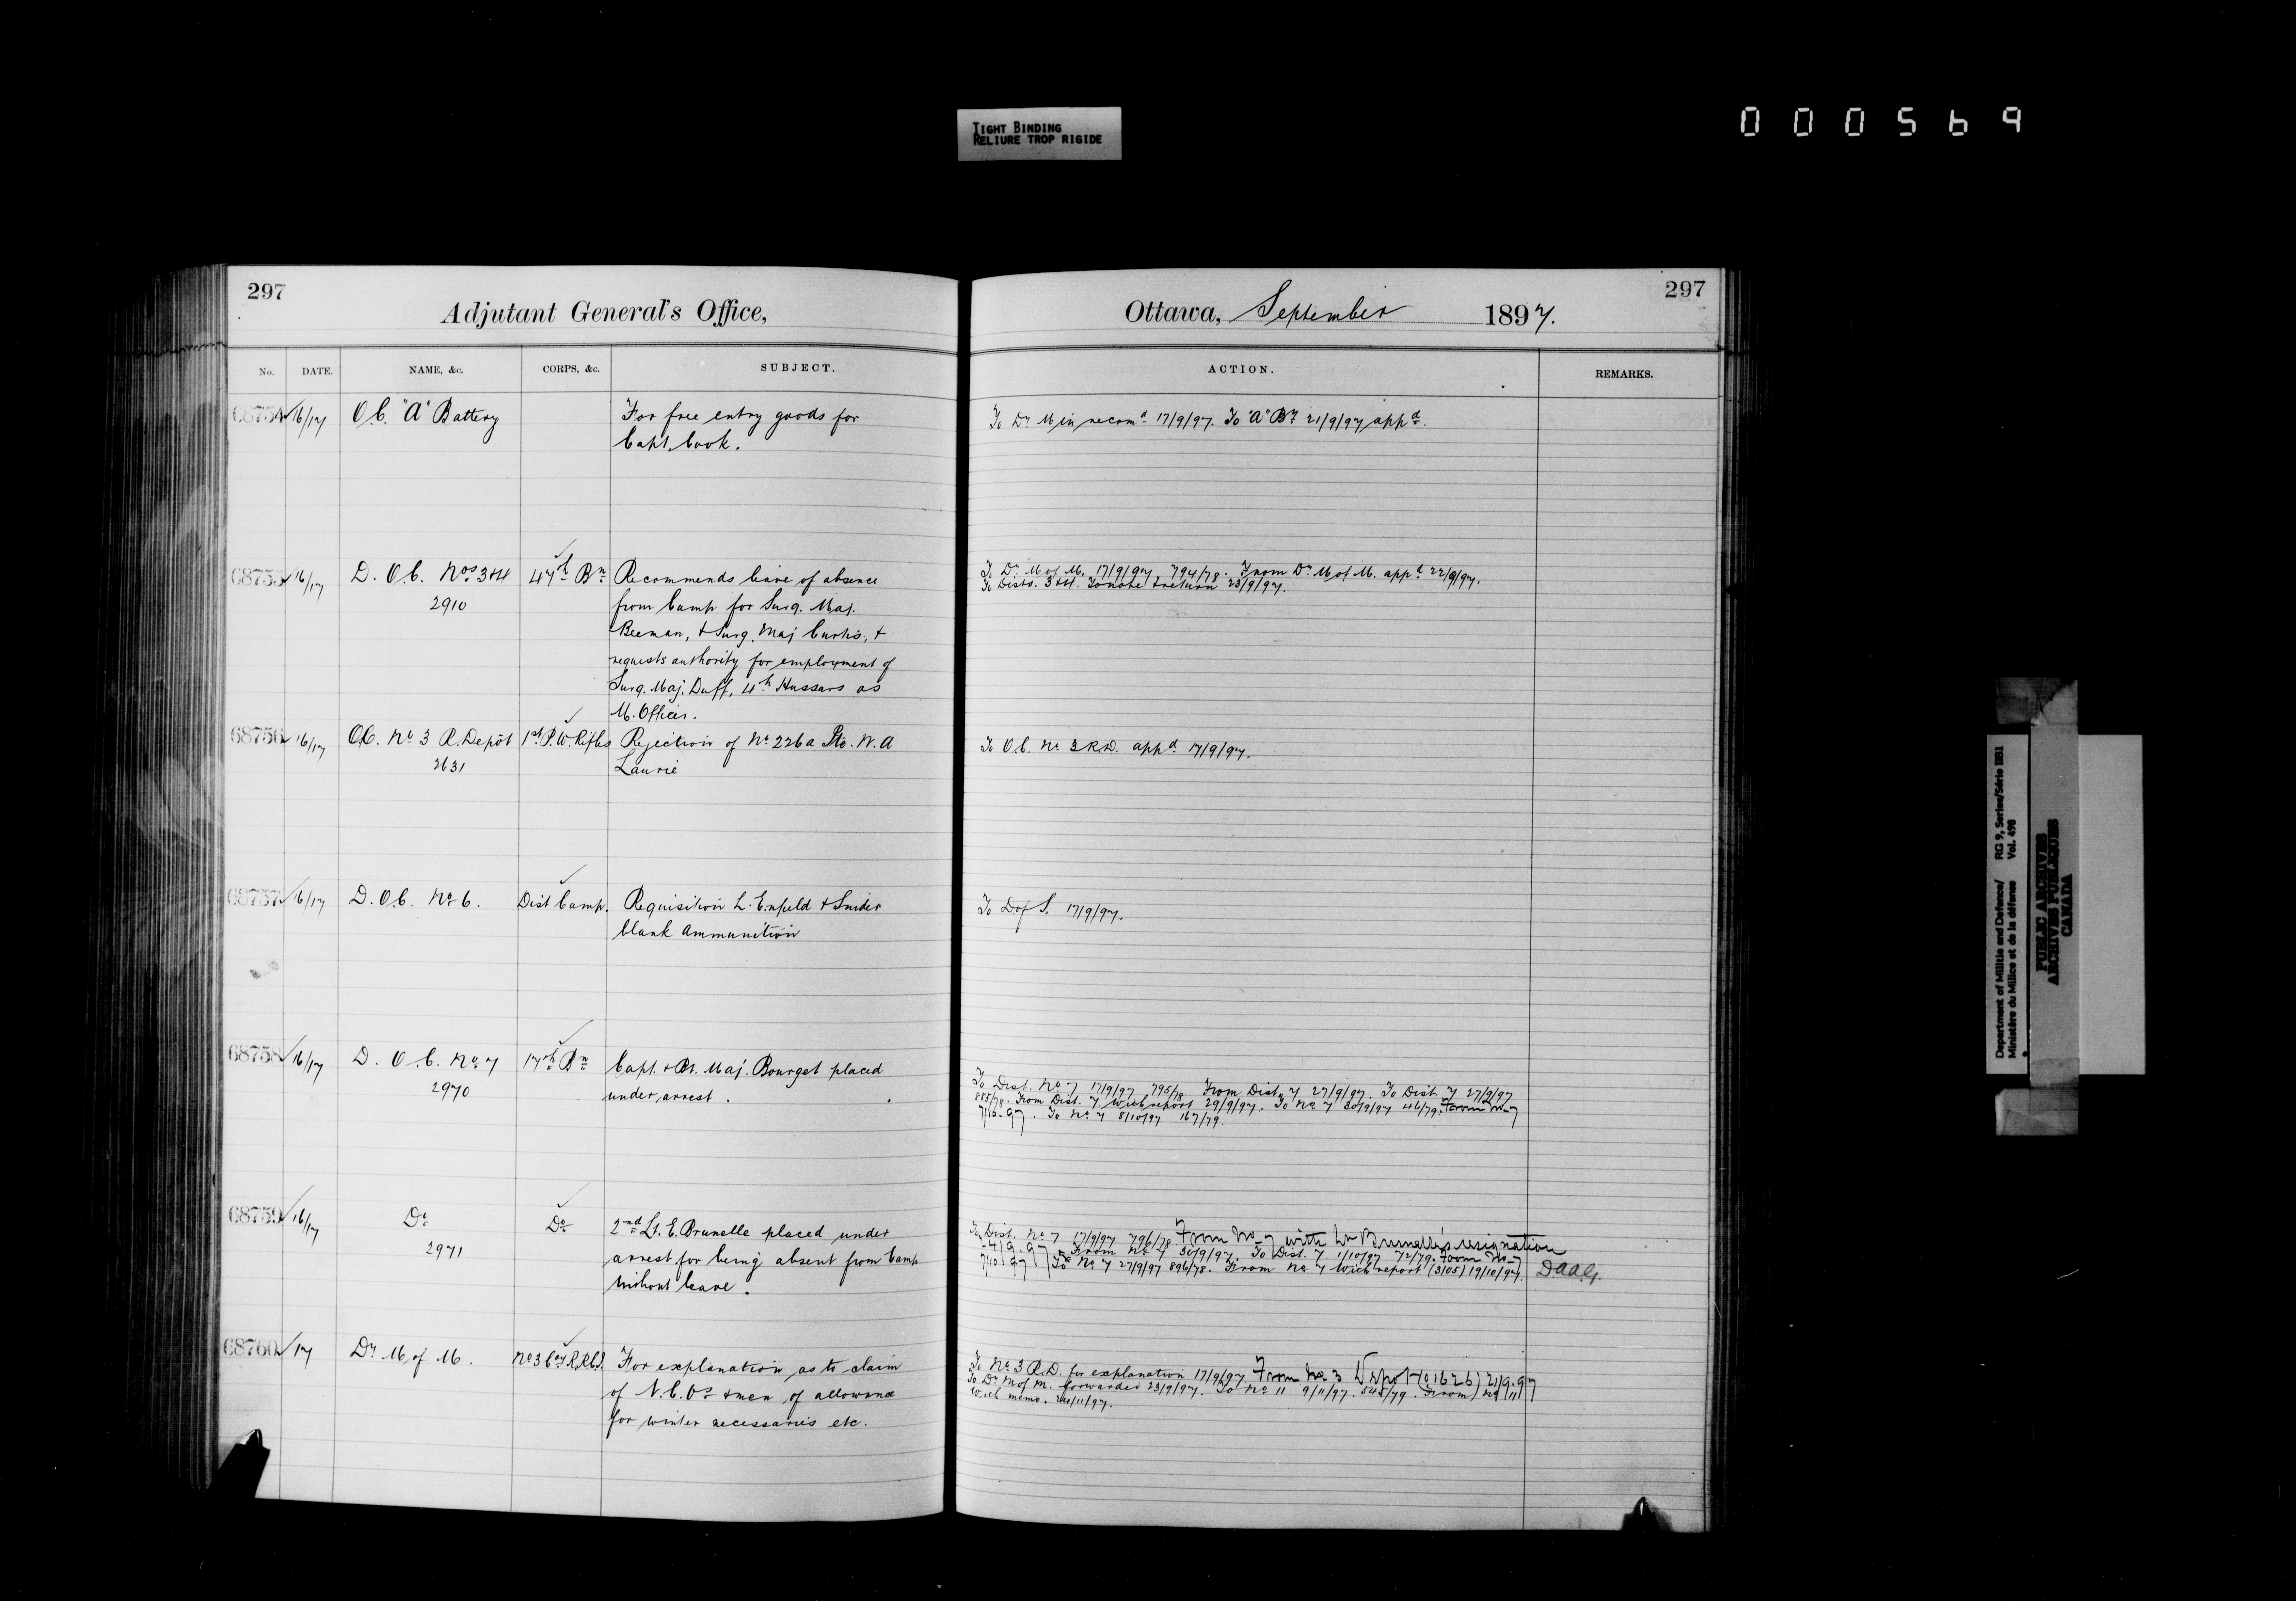 TIGHT BINDING
RELIURE TROP RIGIDE
000569
297
Adjutant General's Office,
No. DATE. NAME, &c. CORPS, &c. SUBJECT.
68754 16/17 O.C. "A" Battery For free entry goods for
Capt. Cook.
68755 16/17 D. O.C. Nos 3 & 4 47th Bn Recommends leave of absence
2910 from Camp for Surg. Maj.
Beeman, & Surg. Maj Curtis, &
requests authority for employment of
Surg. Maj. Duff, 4th Hussars as
M. Officer.
68756 16/17 O.C. No 3 R. Depôt 1st P.W. Rifles Rejection of No 226a Pte. W. A
2631 Laurie
68757 16/17 D. O.C. No 6. Dist Camp. Requisition L. Enfield & Snider
blank ammunition
68758 16/17 D. O.C. No 7 17th Bn Capt. & Bt. Maj. Bourget placed
2970 under arrest.
68759 16/17 Do Do 2nd Lt. E. Brunelle placed under
2971 arrest for being absent from Camp
without leave.
68760 17 Dy M of M. No 3 Coy R.R.C.I. For explanation as to claim
of N.C.Os & men of allowance
for winter necessaries etc.
297
Ottawa, September 1897.
ACTION. REMARKS.
To Dy Min recomd 17/9/97. To "A" By 21/9/97 appd.
To Dy M of M. 17/9/97 794/78. From Dy M of M. appd 22/9/97.
To Dists. 3 & 4. To note & return 23/9/97.
To O.C. No 3 R.D. appd 17/9/97.
To D of S. 17/9/97.
To Dist. No 7 17/9/97 795/78 From Dist. 7 27/9/97. To Dist. 7 27/9/97
885/78. From Dist. 7 with report 29/9/97. To No 7 30/9/97 46/79. From No 7
7/10-97. To No 7 8/10/97 167/79.
To Dist. No 7 17/9/97 796/78. From No 7 with Lt Brunelle's resignation
24/9.97. From No 7 30/9/97. To Dist. 7 1/10/97 72/79. From No 7
7/10/97 To No 7 27/9/97 896/78. From No 7 with report (3105) 19/10/97. D.A.A.G.
To No 3 R.D. for explanation 17/9/97 From No 3 Depot (01626) 21/9.97
To Dy M of M. forwarded 23/9/97. To No 11 9/11/97. 545/79. From No 11
with memo. 24/11/97.
Department of Militia and Defence/ RG 9, Series/Série IIB1
Ministère du Milice et de la défense Vol. 498
PUBLIC ARCHIVES
ARCHIVES PUBLIQUES
CANADA